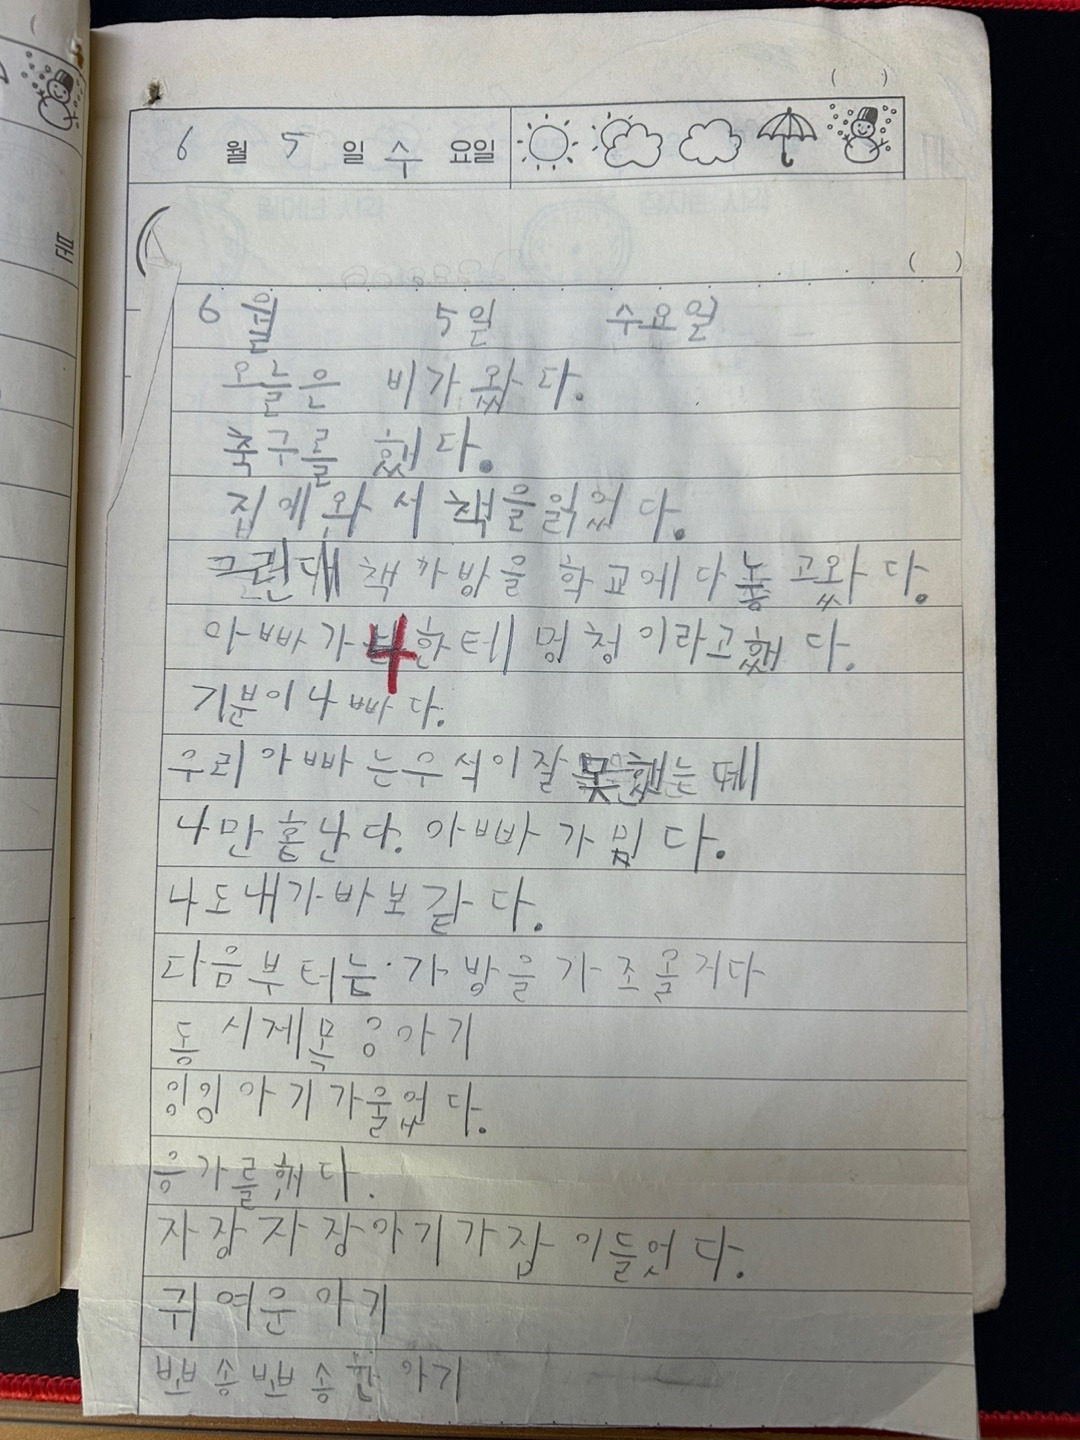 ( )
6 월 5 일 수 요일
( )
6월 5일 수요일
오늘은 비가 왔다.
축구를 했다.
집에 와서 책을 읽었다.
그린대 책가방을 학교에다 놓고왔다.
아빠가 한테 멍청이라고했다.
기분이 나빠다.
우리 아빠는 우석이 잘못했는떼
나만 혼난다. 아빠가 밉다.
나도 내가 바보 같다.
다음부터는 가방을 가조올거다
동시제목 응아기
잉잉 아기가 울었다.
응가를했다.
자장자장아기가잠이들었다.
귀여운 아기
뽀송뽀송한 아기